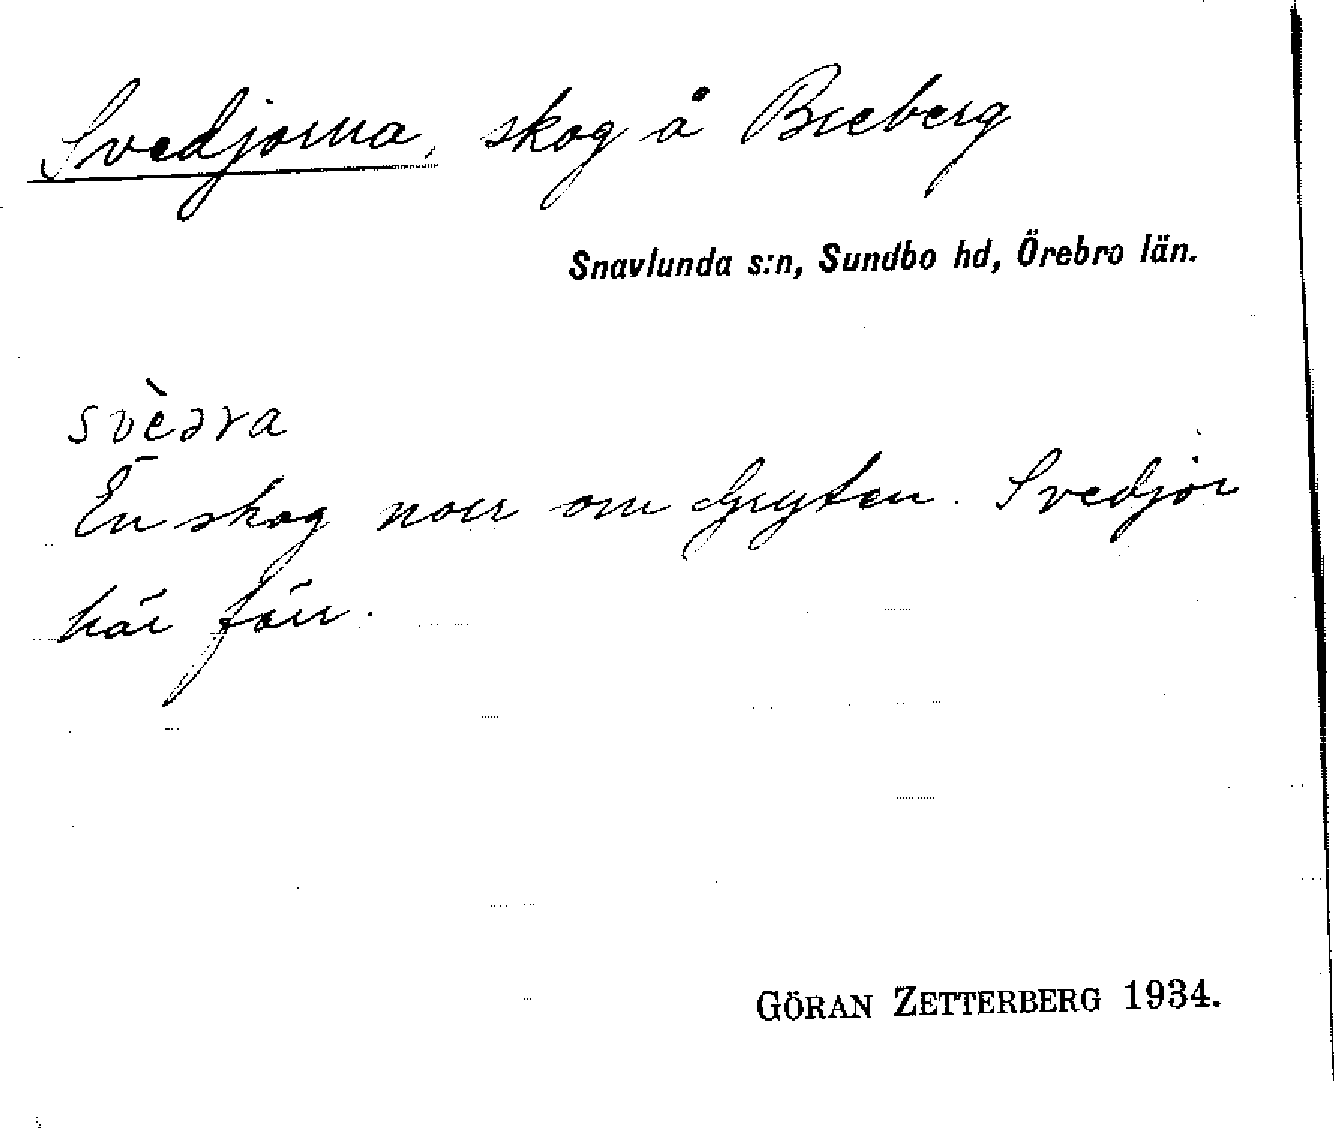 Svedjorna, skog å Breberg
Snavlunda s:n, Sundbo hd, Örebro län.
svèdra
En skog norr om Gryten. Svedjor
här förr.
GÖRAN ZETTERBERG 1934.